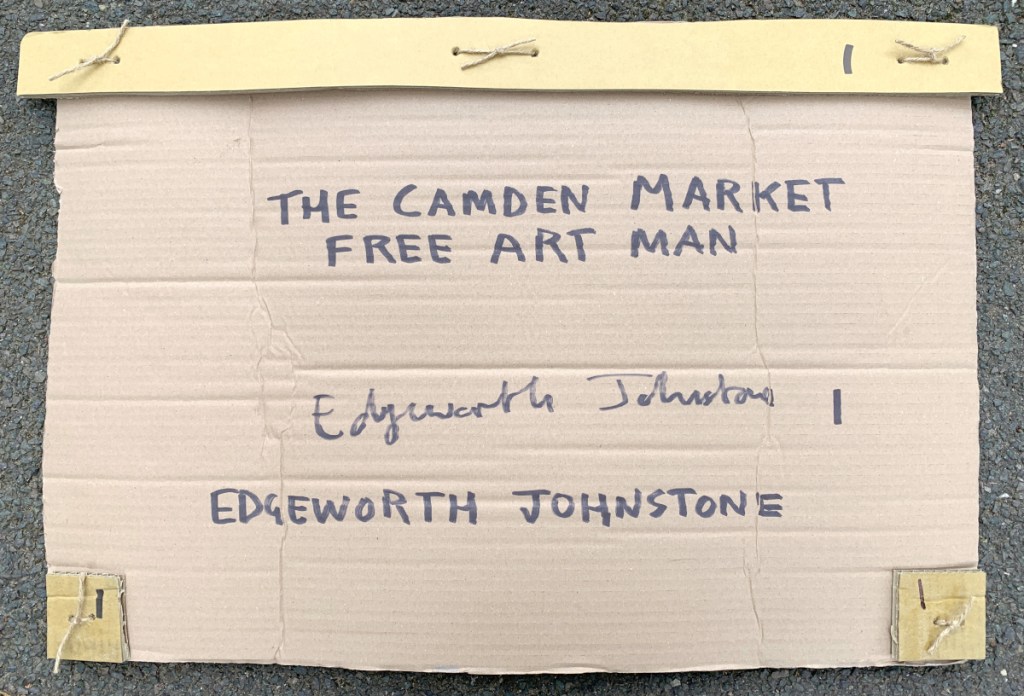 1
THE CAMDEN MARKET
FREE ART MAN
Edgeworth Johnstone 1
EDGEWORTH JOHNSTONE
1 1